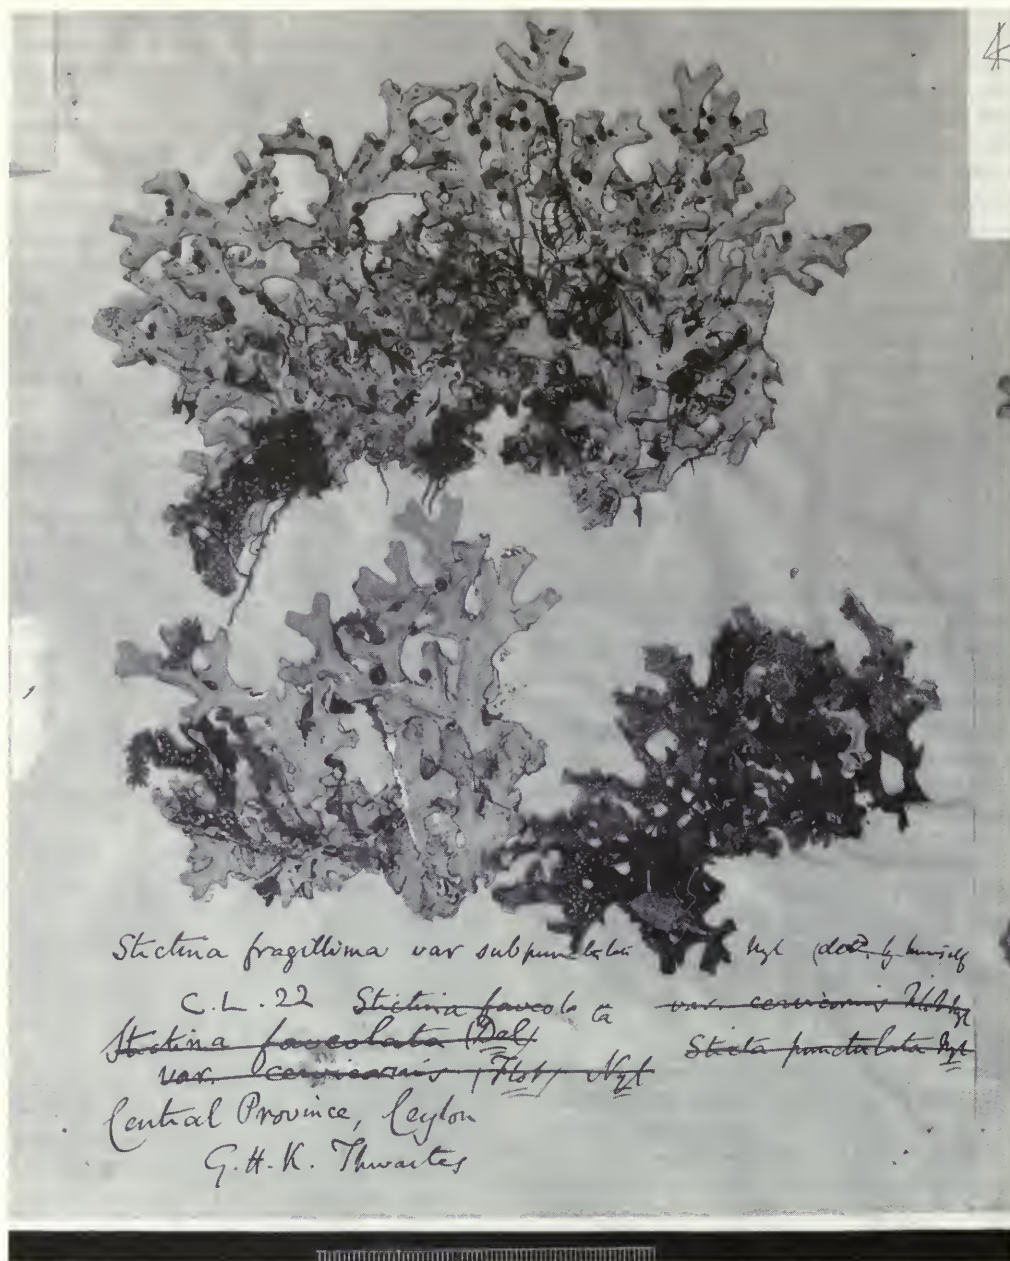 Stictina fragillima var subpunctulata Nyl (det. by himself
C.L. 22 Stictina faveolata var. cervicornis Nyl
Stictina faveolata (Del) Sticta punctulata Nyl
var. cervicornis (Flot) Nyl
Central Province, Ceylon
G.H.K. Thwaites